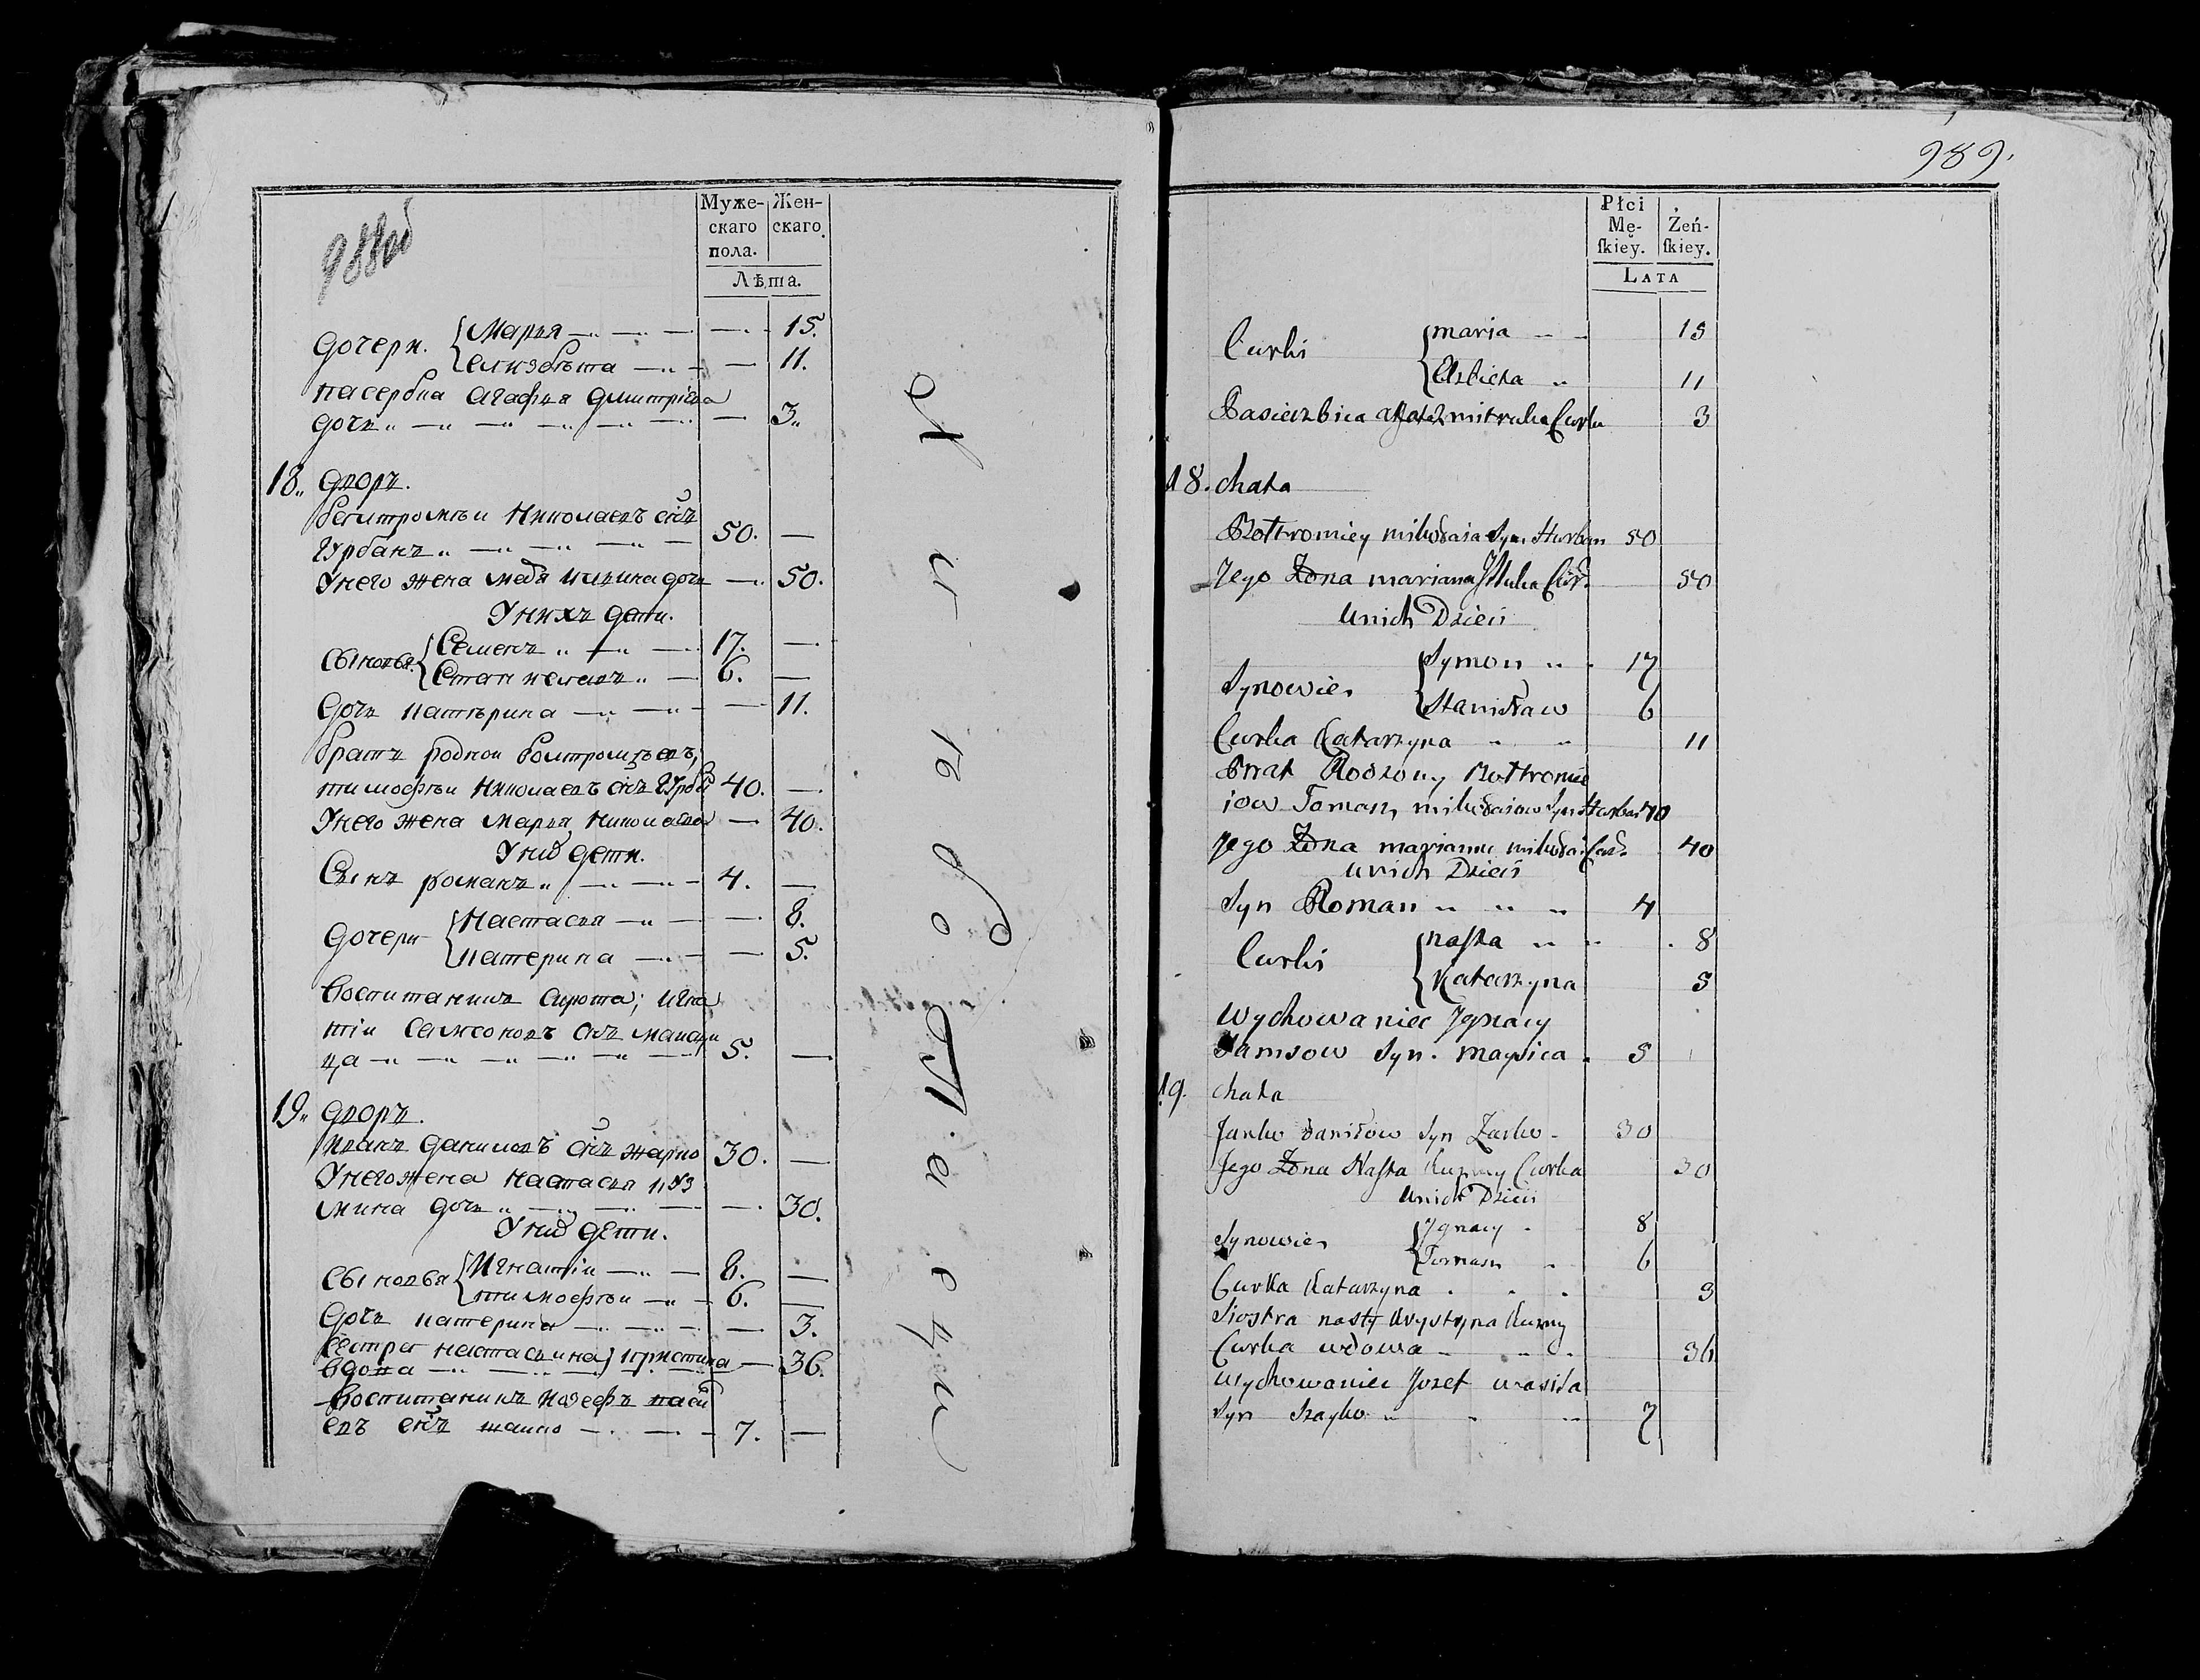 988об
Муже-
скаго
пола.
Жен-
скаго
Лѣта.
Дочери. Марья 15.
Елизабѣта 11.
пасербка Агафья Дмитрiева
дочь 3.
18. Дворъ.
Болтромѣи Николаевъ снъ
Урбанъ 50.
У него жена дочь 50.
У нихъ дети.
Сыновья Семенъ 17.
Станиславъ 6.
Дочь Катѣрина 11.
братъ родной Болтромѣевъ,
тимофѣи Николаевъ снъ 40.
У него жена Марья Николаева 40.
У нихъ дети.
Сынъ романъ 4.
Дочери Настасья 8.
Катерина 5.
воспитаникъ сирота, Игна
тiи Самсоновъ снъ
ца 5.
19. Дворъ.
Иванъ Даниловъ снъ жарко 30.
У него жена Настасья Куз
мина дочь 30.
У нихъ дети.
Сыновья Игнатiи 8.
тимофѣи 6.
Дочь Катерина 3.
Сестра настасьина кристина
вдова 36.
воспитаникъ Иозефъ
евъ снъ 7.
989.
Płci
Mę-
ſkiey.
Żeń-
ſkiey.
LATA
Curki maria 15
Elzbieta 11
Pasierzbica Curka 3
18. chata
Bołtromiey mikołaia Syn Hurban 50
Jego Żona marianna Curka 50
u nich Dzieci
Synowie Symon 17
Stanisław 6
Curka Katarzyna 11
Brat Rodzony Bołtromie
iow Tomasz mikołaiow Syn Hurban 40
Jego Żona marianna mikołai Cur: 40
u nich Dzieci
Syn Roman 4
Curki nasta 8
Katarzyna 5
Wychowaniec Jgnacy
Samsow Syn. maysica 5
19. chata
Janko daniłow Syn Żarko 30
Jego Żona Nasta Kuzmy Curka 30
u nich Dzieci
Synowie Jgnacy 8
Tomasz 6
Curka Katarzyna 3
Siostra nasty Krystyna Kuzmy
Curka wdowa 36
wychowaniec Jozef wasila
Syn Szayko 7